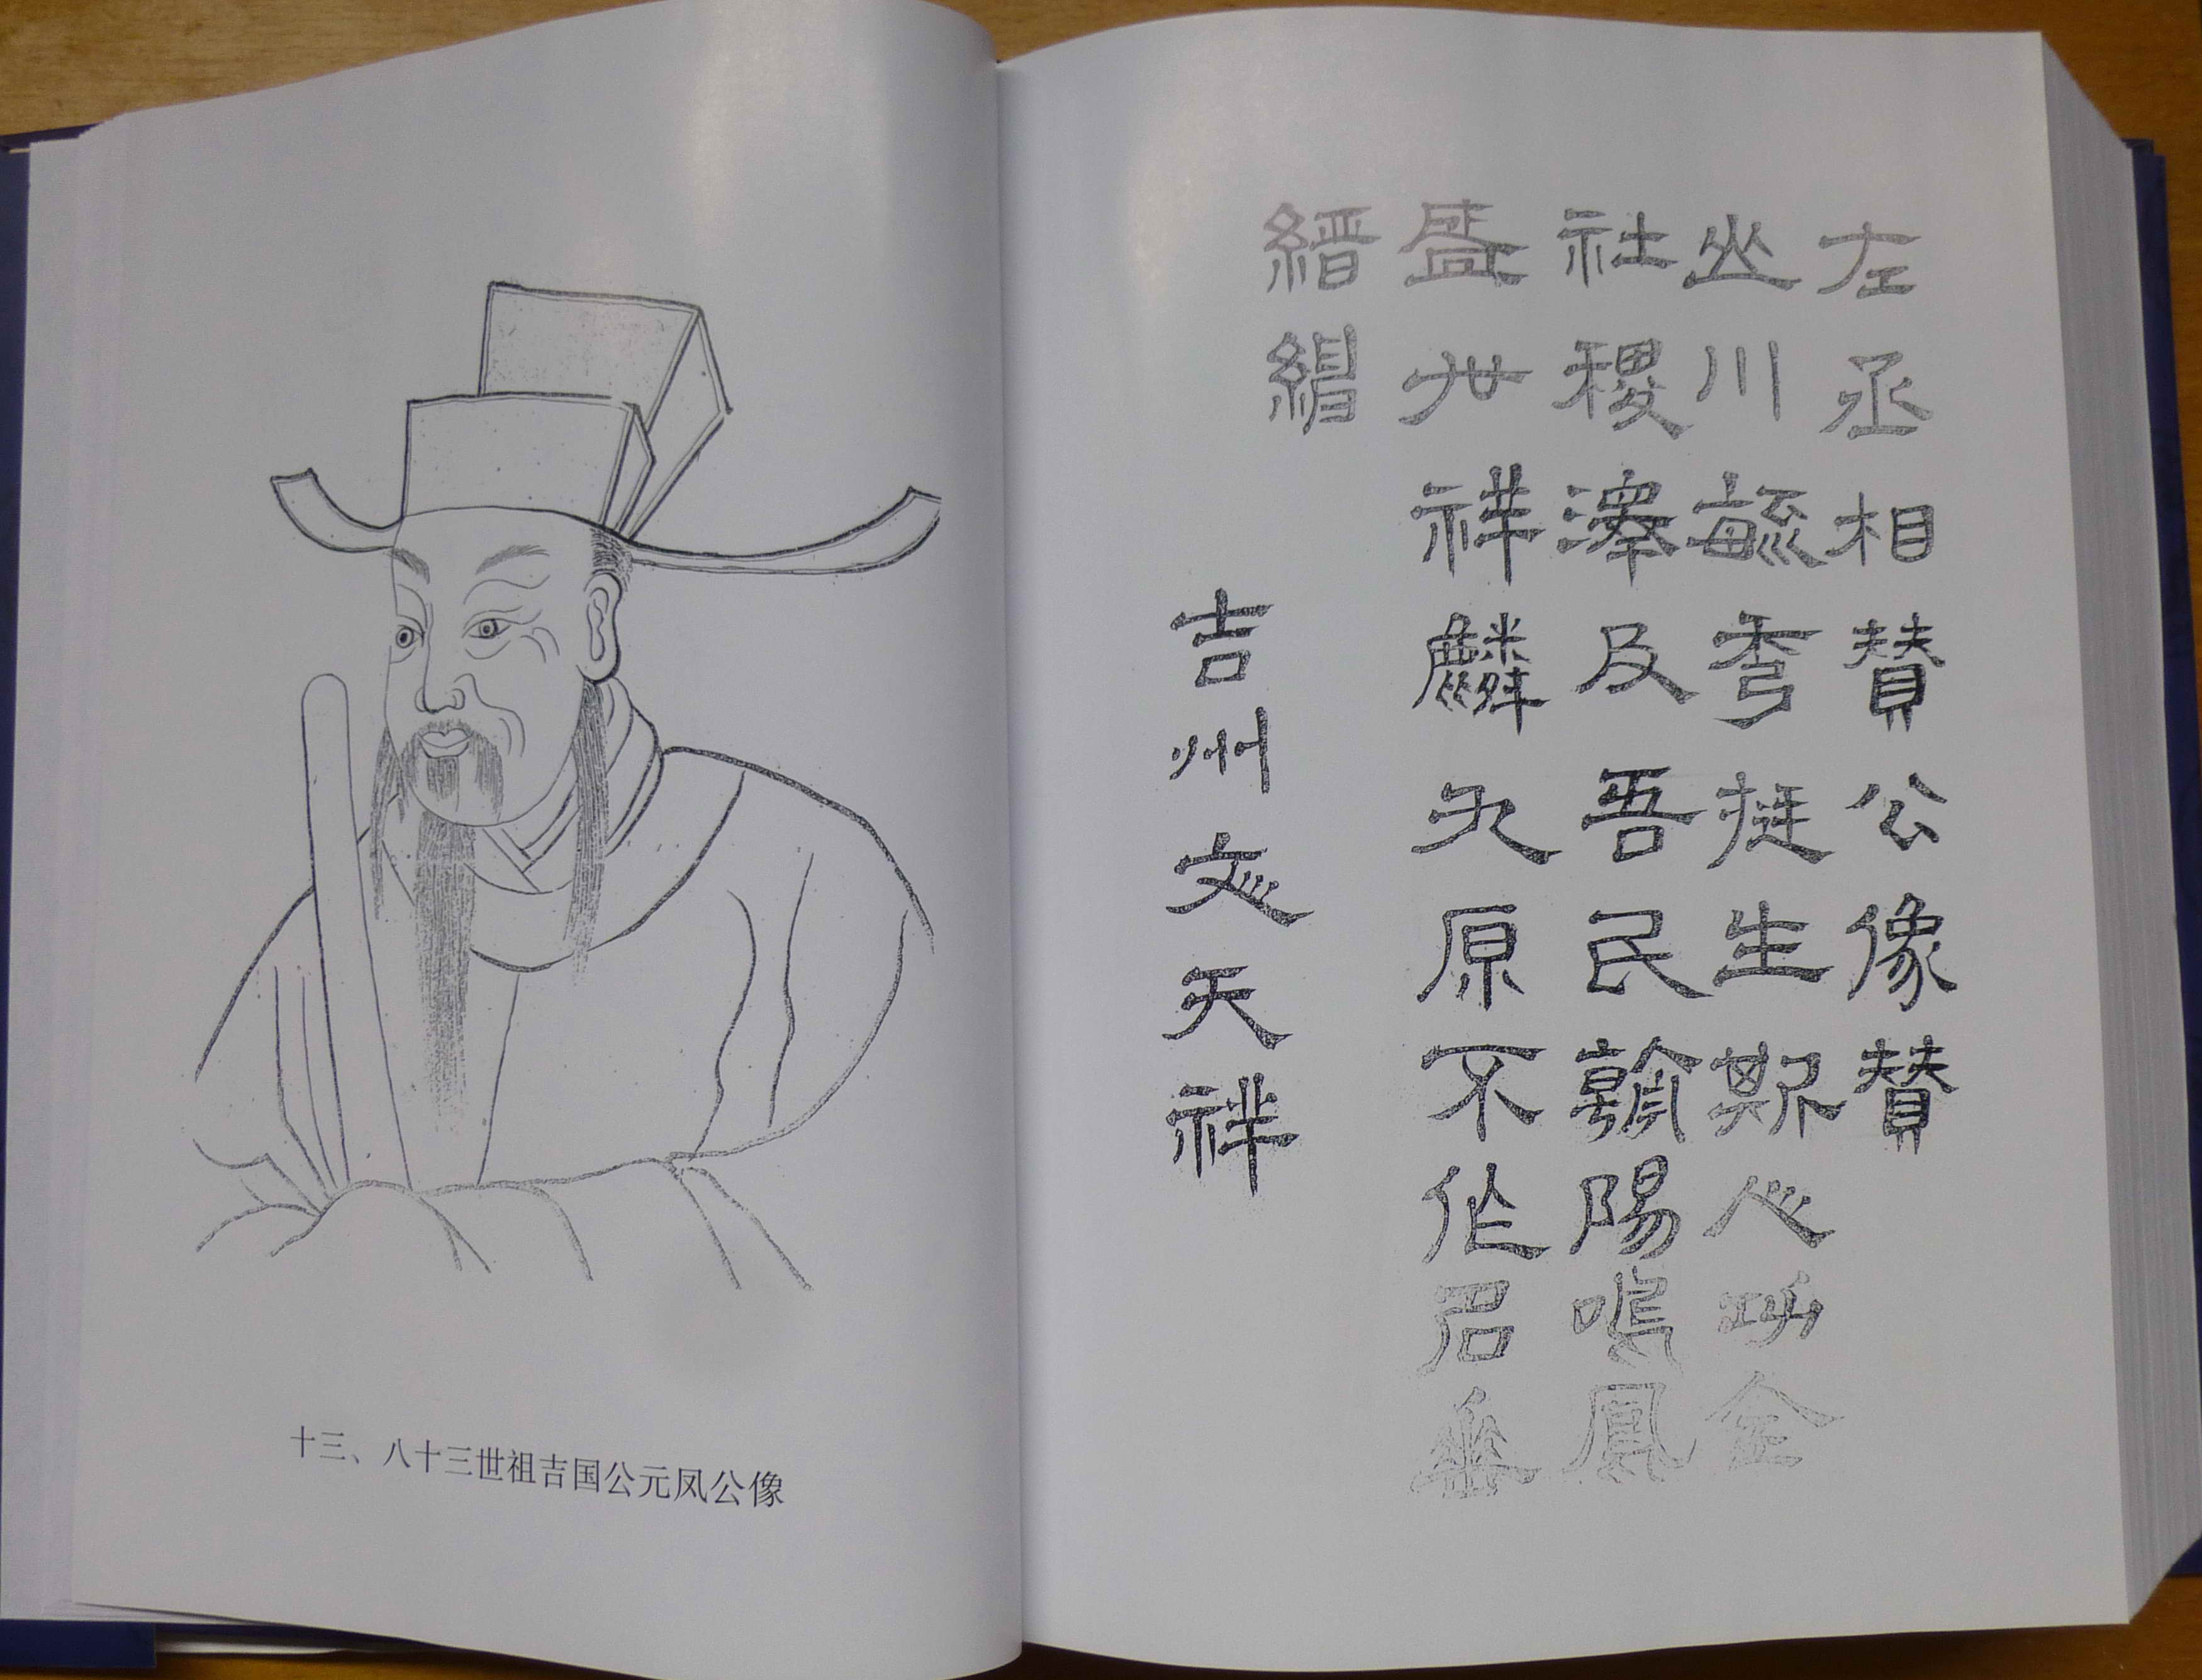 十三、八十三世祖吉国公元凤公像
左丞相賛公像賛
山川毓秀挺生斯人功全
社稷澤及吾民朝陽鳴鳳
盛世祥麟九原不作名垂
縉紳
吉州文天祥